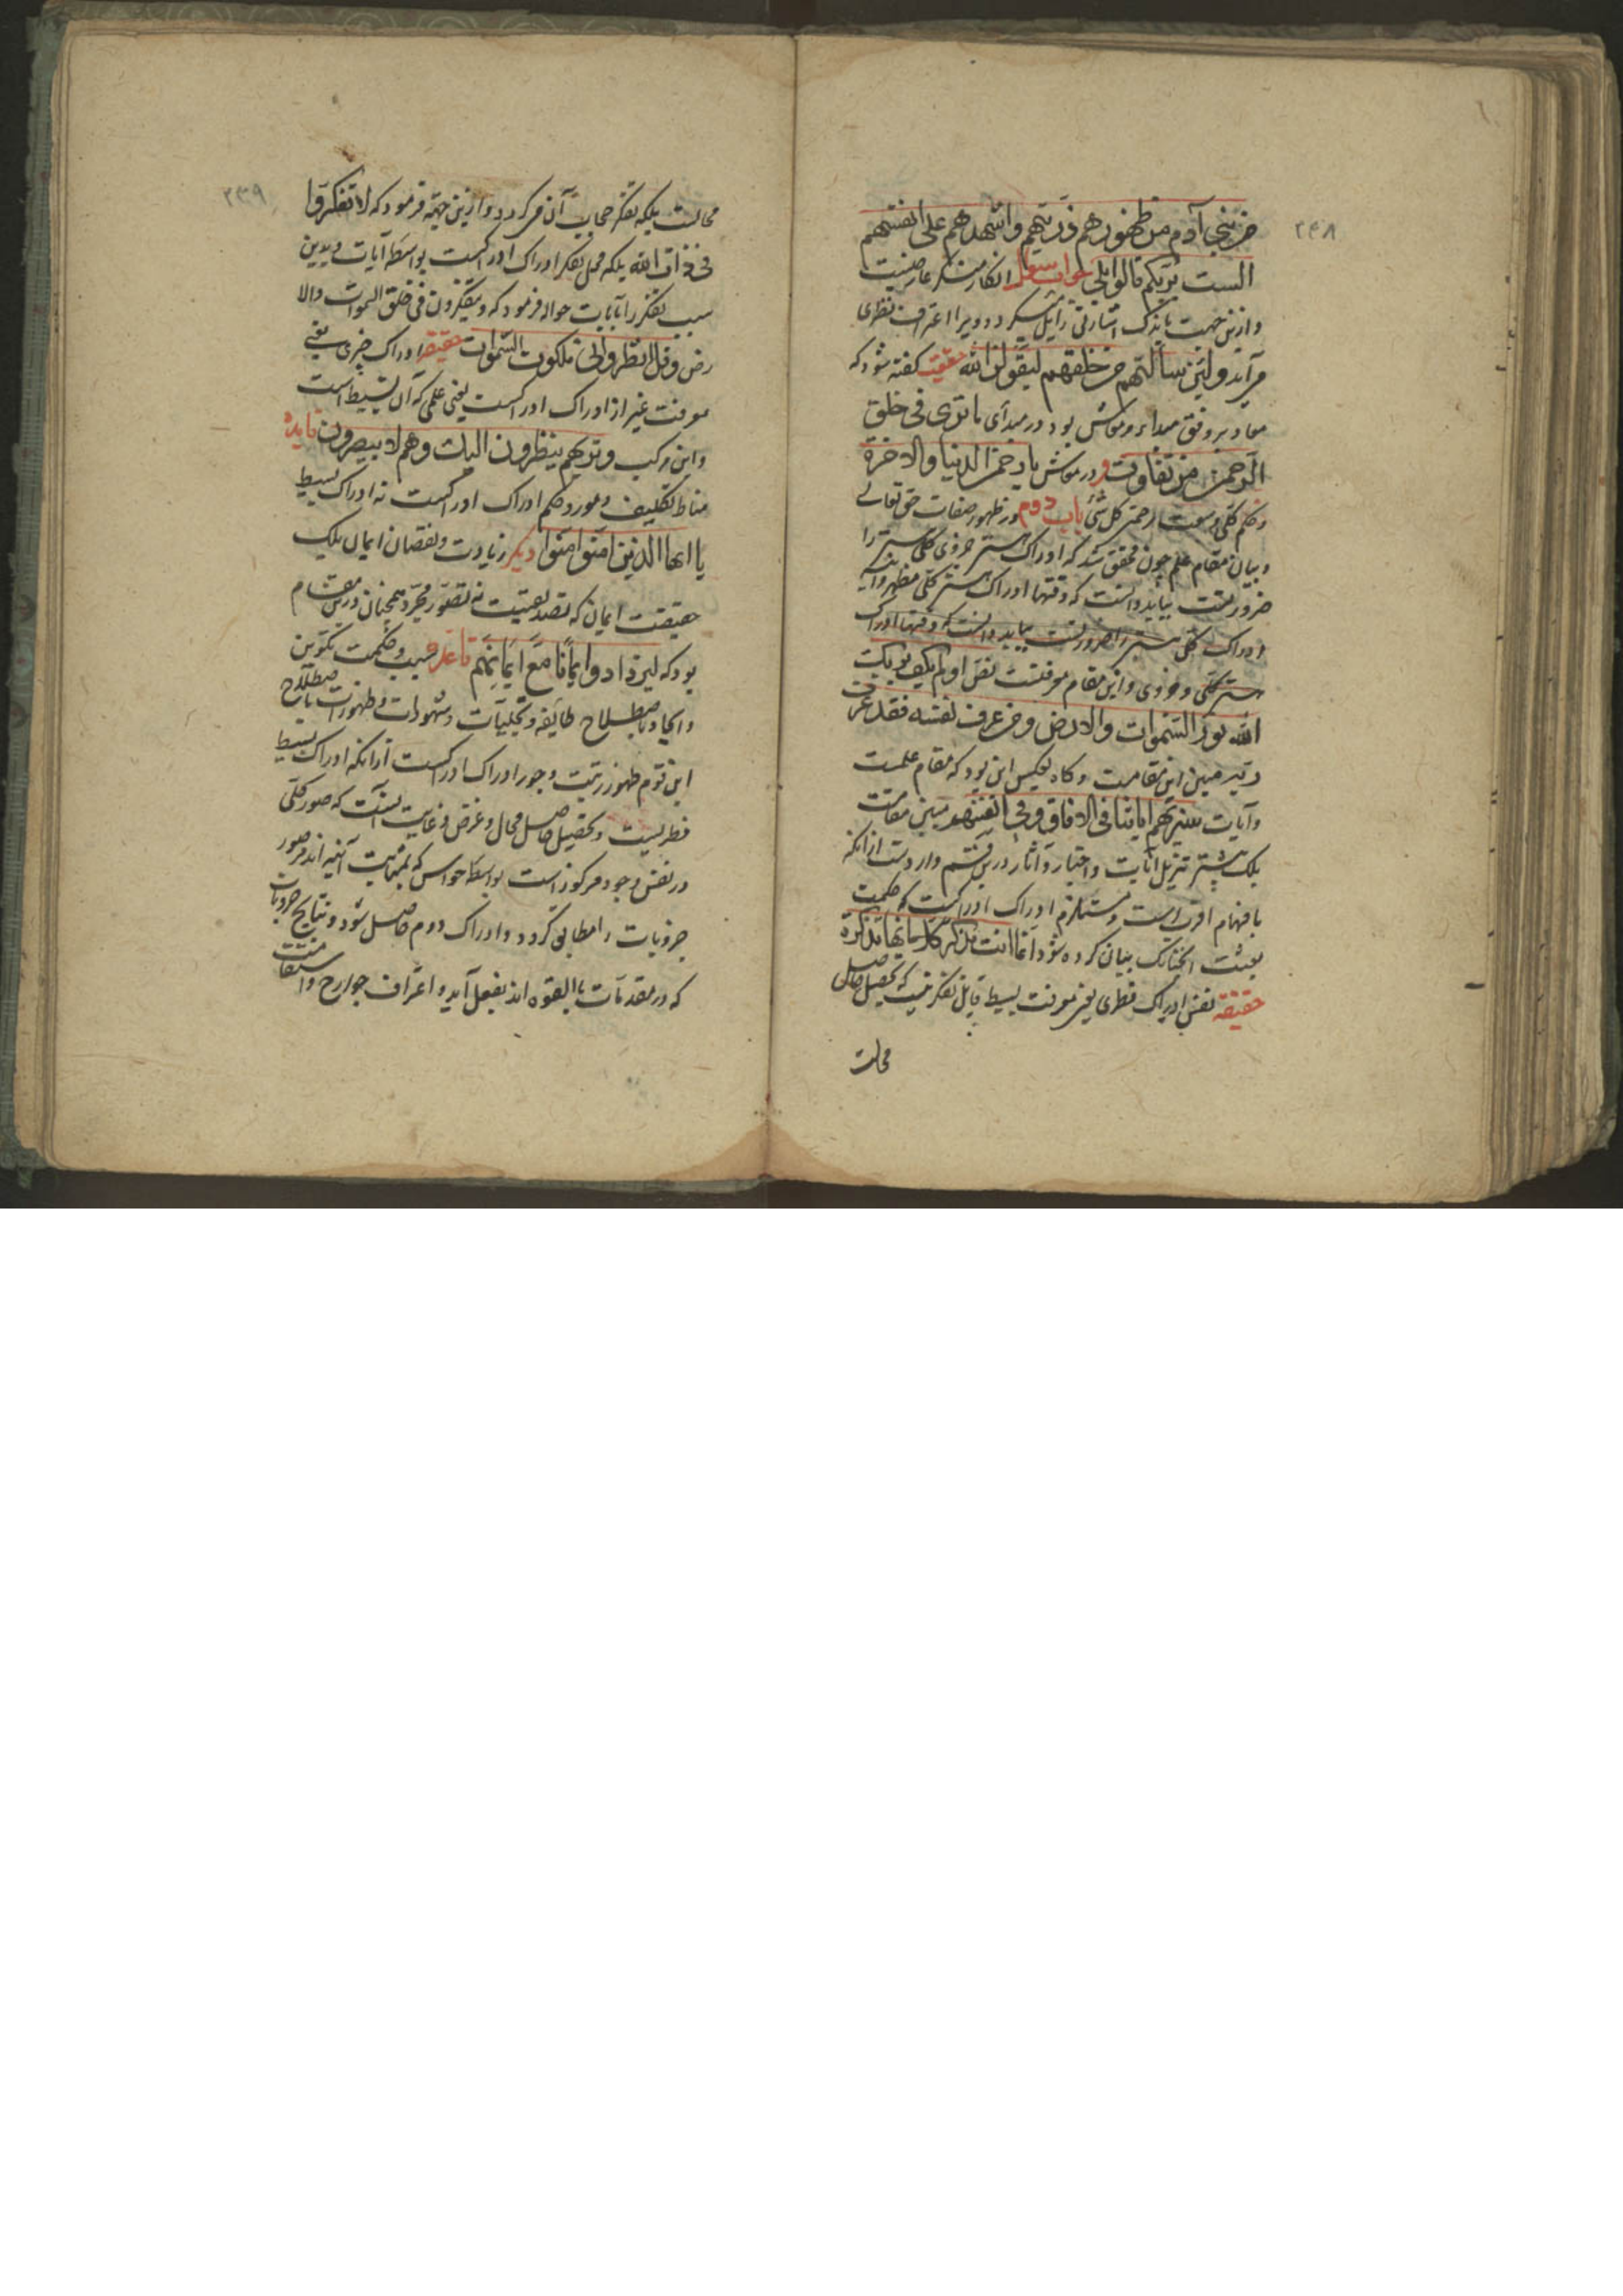 ۲۳۸
من بنی آدم من ظهورهم ذریتهم واشهدهم علی انفسهم
الست بربکم قالوا بلی جواب سوال انکار منکر عارضیست
وازین جهت باندک اشارتی زایل میکردد ویرا اعتراف نظری
می آید ولئن سالتهم من خلقهم لیقولن الله حقیقت کفته شود که
معاد بر وفق مبداء ومعاش بود در مبدای ما تری فی خلق
الرحمن من تفاوت و در معاش یا رحمن الدنیا والاخرة
وحکم کلی وسعت رحمتی کل شئ باب دوم در ظهور صفات حق تعالی
وبیان مقام علم چون محقق شد که ادراک هستی جزوی کلی هستی را
ضروریست بباید دانست که وقتها ادراک هستی کلی مظهر وآینه
ادراک کلی هستی را ضروریست بباید دانست که وقتها ادراک
هستی کلی وجزوی واین مقام معرفتست نص اولم یکف بربک
الله نور السموات والارض ومن عرف نفسه فقد عرف
ربه مبین این مقامست وکاه بعکس این بود که مقام علمست
وآیات سنریهم ایاتنا فی الافاق وفی انفسهم مبین مقامست
بلک بیشتر تنزیل آیات واخبار وآثار درین قسم واردست از آنکه
بافهام اقرب است ومستلزم ادراک ادراکست که حکمت
بعثت چنانک بیان کرده شود انما انت مذکر کلا انها تذکرة
حقیقة نفس ادراک فطری یعنی معرفت بسیط قابل تفکر نیست که تحصیل حاصل
محالست
۲۳۹
محالست بلکه تفکر حجاب آن می کردد وازین جهة فرمود که لا تفکروا
فی ذات الله بلکه محل تفکر ادراک ادراکست بواسطه آیات وبدین
سبب تفکر را بآیات حواله فرمود که ویتفکرون فی خلق السموات والا
رض وقل انظروا الی ملکوت السموات حقیقة ادراک چیزی یعنی
معرفت غیر از ادراک ادراکست یعنی علمی که آن بسیط است
واین مرکب وتریهم ینظرون الیک وهم لا یبصرون فایده
مناط تکلیف ومورد حکم ادراک ادراکست نه ادراک بسیط
یا ایها الذین امنوا امنوا دیکر زیادت ونقصان ایمان بلیک
حقیقت ایمان که تصدیقیست نه تصور مجرد همچنان درین مقام
بود که لیزدادوا ایمانا مع ایمانهم قاعده سبب وحکمت تکوین
وایجاد باصطلاح طایفه وتجلیات وشهودات وظهورات باصطلاح
این قوم ظهور رتبت وجود ادراک ادراکست از آنکه ادراک بسیط
فطریست وتحصیل حاصل محال وغرض وغایت آنست که صور کلی
در نفس وجود مرکوز است بواسطه حواس که بمثابت آینه اند مر صور
جزویات را مطابق کردد وادراک دوم حاصل شود ونتایج جزویات
که در مقدمات بالقوه اند بفعل آید واعتراف جوارح